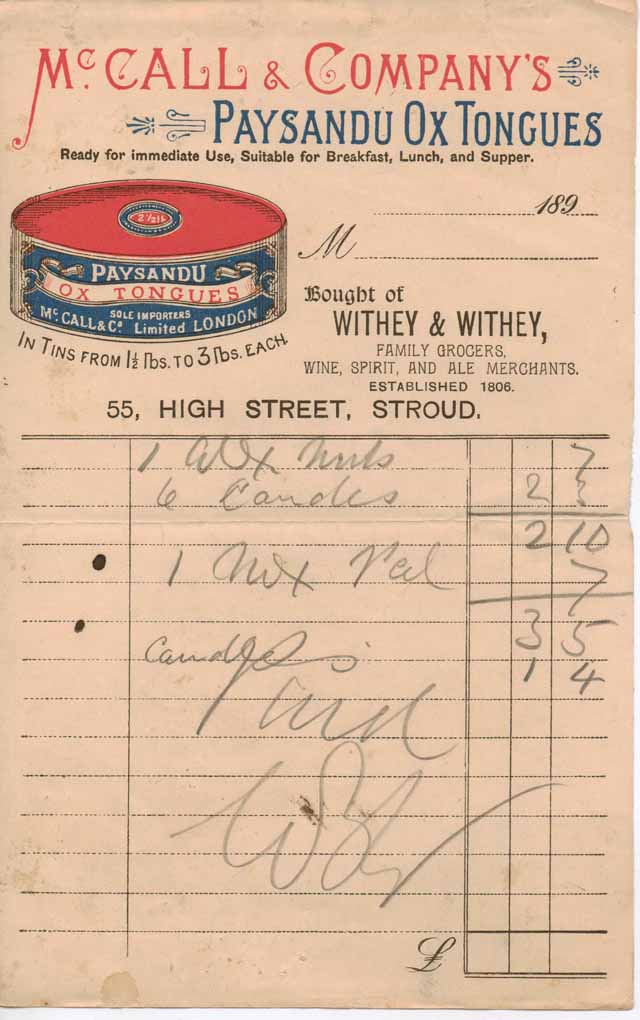 McCALL & COMPANY'S
PAYSANDU OX TONGUES
Ready for immediate Use, Suitable for Breakfast, Lunch, and Supper.
2½ lb
PAYSANDU
OX TONGUES
SOLE IMPORTERS
McCALL & Co Limited LONDON
IN TINS FROM 1½ lbs. TO 3 lbs. EACH.
189
M
Bought of
WITHEY & WITHEY,
FAMILY GROCERS,
WINE, SPIRIT, AND ALE MERCHANTS.
ESTABLISHED 1806.
55, HIGH STREET, STROUD.
1 nuts 7
6 Candles 2 3
2 10
1 Mix Peel 7
3 5
Candles 1 4
Paid
£